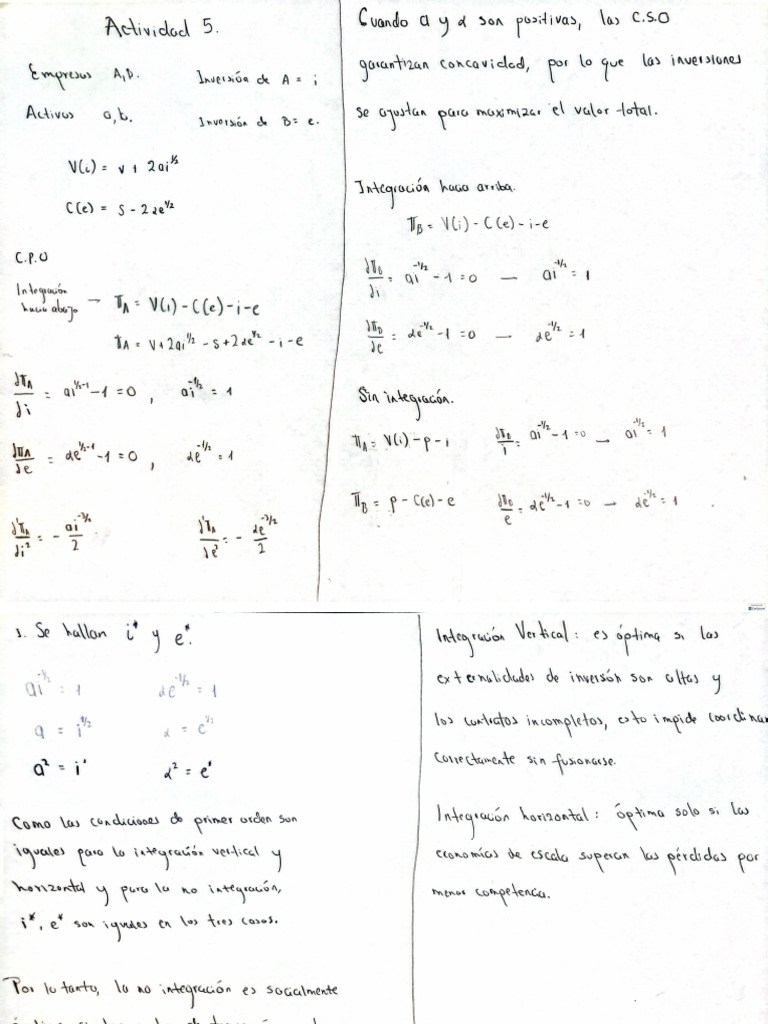 Actividad 5.
Empresas A,B.
Inversión de A = i
Activos a,b.
Inversión de B = e.
V(i) = v + 2ai^{1/2}
C(e) = s - 2αe^{1/2}
C.P.O
Integración hacia abajo → π_A = V(i) - C(e) - i - e
π_A = v + 2ai^{1/2} - s + 2αe^{1/2} - i - e
∂π_A/∂i = ai^{1/2-1} - 1 = 0 , ai^{-1/2} = 1
∂π_A/∂e = αe^{1/2-1} - 1 = 0 , αe^{-1/2} = 1
∂²π_A/∂i² = - ai^{-3/2}/2
∂²π_A/∂e² = - αe^{-3/2}/2
Cuando a y α son positivas, las C.S.O
garantizan concavidad, por lo que las inversiones
se ajustan para maximizar el valor total.
Integración hacia arriba.
π_B = V(i) - C(e) - i - e
∂π_B/∂i = ai^{-1/2} - 1 = 0 — ai^{-1/2} = 1
∂π_B/∂e = αe^{-1/2} - 1 = 0 — αe^{-1/2} = 1
Sin integración.
π_A = V(i) - p - i
∂π_A/i = ai^{-1/2} - 1 = 0 → ai^{-1/2} = 1
π_B = p - C(e) - e
∂π_B/e = αe^{-1/2} - 1 = 0 → αe^{-1/2} = 1
1. Se hallan i* y e*.
ai^{-1/2} = 1
αe^{-1/2} = 1
a = i^{1/2}
α = e^{1/2}
a² = i*
α² = e*
Como las condiciones de primer orden son
iguales para la integración vertical y
horizontal y para la no integración,
i*, e* son iguales en los tres casos.
Por lo tanto, la no integración es socialmente
Integración Vertical: es óptima si las
externalidades de inversión son altas y
los contratos incompletos, esto impide
correctamente sin fusionarse.
Integración horizontal: óptima solo si las
economías de escala superan las pérdidas por
menor competencia.